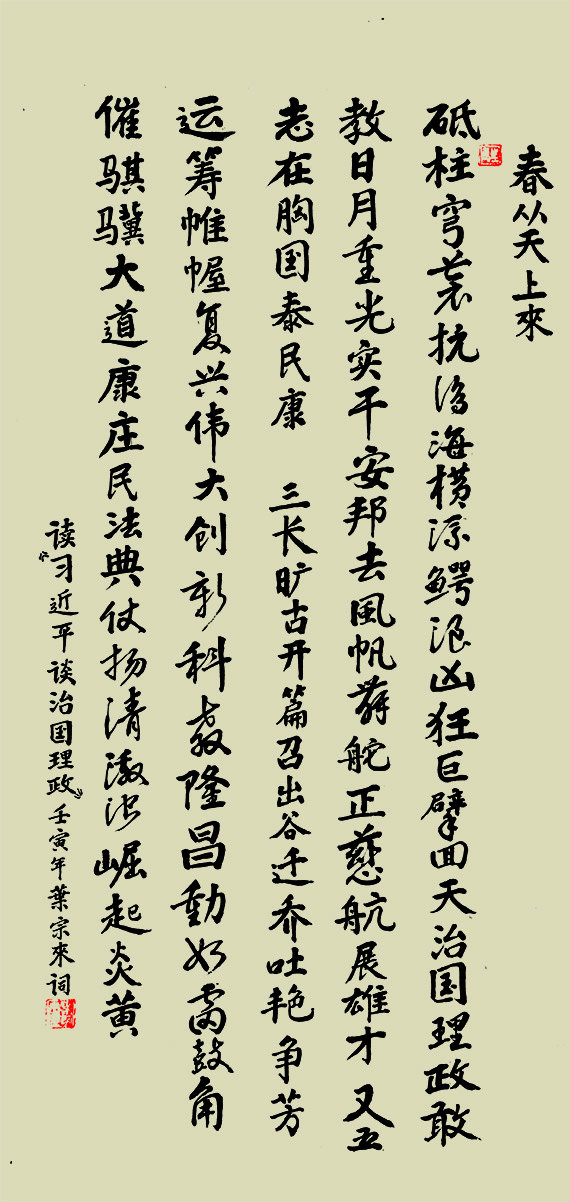 春从天上來
砥柱穹苍抗沧海横流鳄浪凶狂巨擘回天治国理政敢
教日月重光实干安邦去風帆舵正慈航展雄才又五
志在胸国泰民康 三长旷古开篇召出谷迁乔吐艳争芳
运筹帷幄复兴伟大创新科教隆昌動如雷鼓角
催骐骥大道康庄民法典仗扬清激浊崛起炎黄
读《习近平谈治国理政》壬寅年葉宗來词